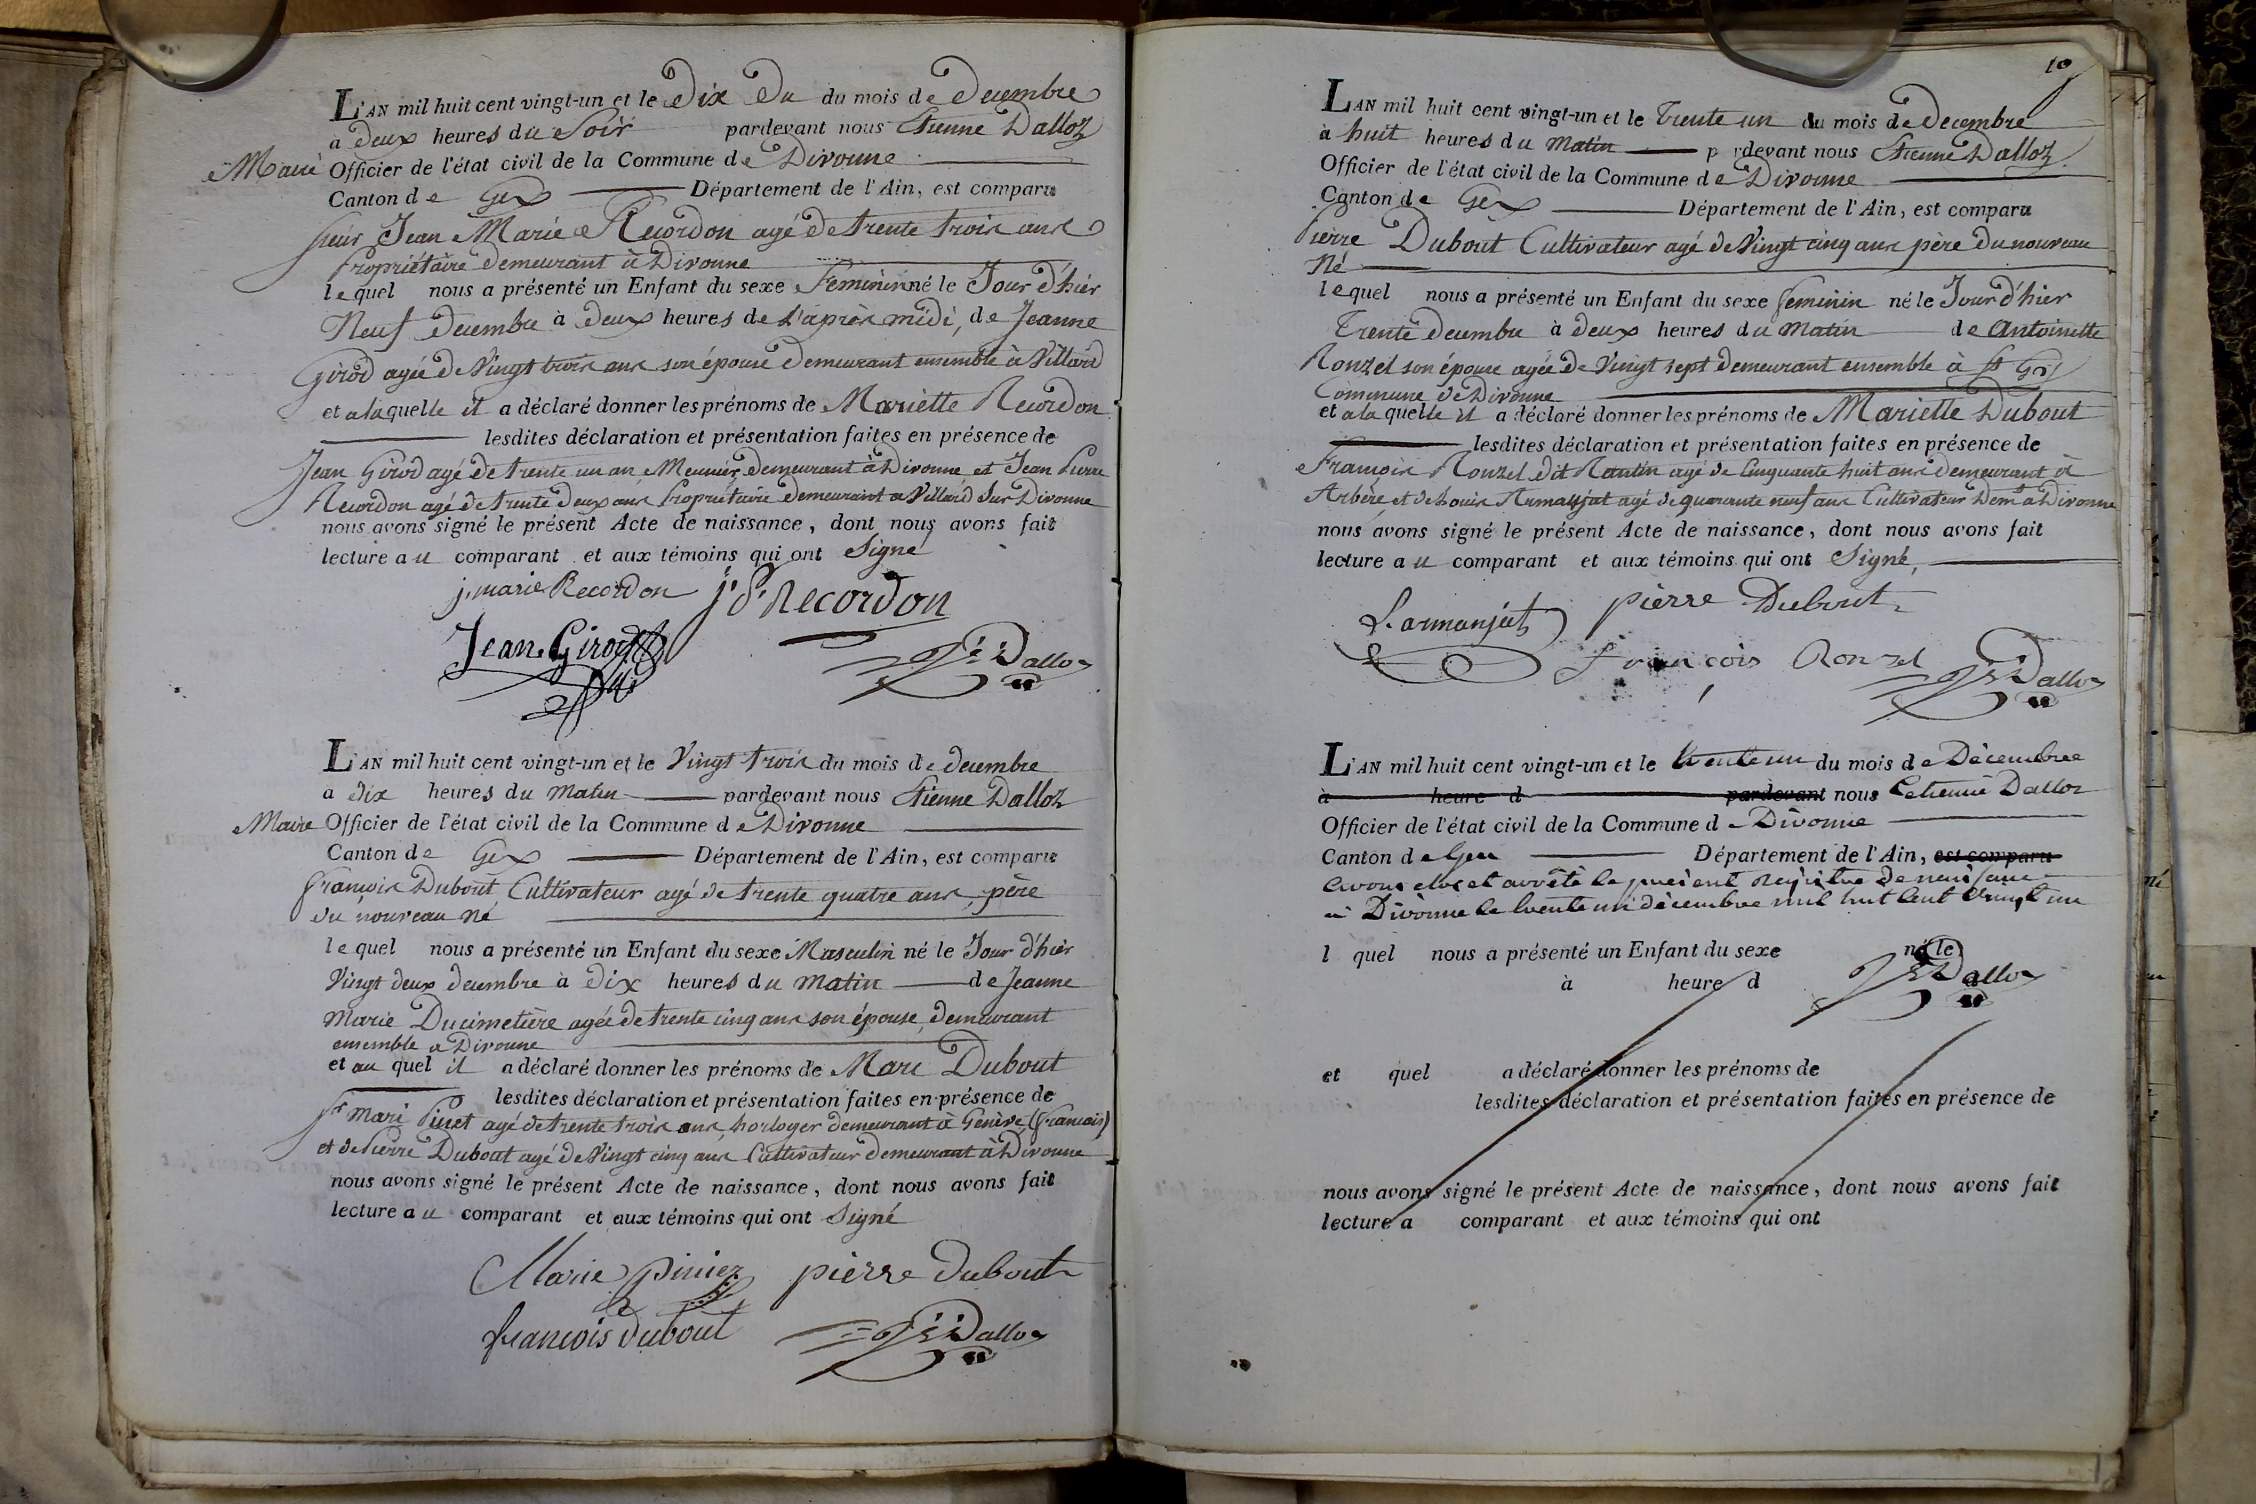 L'AN mil huit cent vingt-un et le Dix Du du mois de Decembre
à Deux heures du Soir pardevant nous Etienne Dalloz
Maire Officier de l'état civil de la Commune de Divonne
Canton de Gex Département de l'Ain, est comparu
Sieur Jean Marie Recordon agé de trente trois ans
Propriétaire demeurant à Divonne
lequel nous a présenté un Enfant du sexe Feminin né le Jour d'hier
Neuf Decembre à Deux heures de L'après midi, de Jeanne
Girod agée de Vingt trois ans son épouse Demeurant ensemble à Villard
et a laquelle il a déclaré donner les prénoms de Mariette Recordon
lesdites déclaration et présentation faites en présence de
Jean Girod agé de trente un an Meunier, demeurant à Divonne et Jean Pierre
Recordon agé de trente Deux ans Propriétaire demeurant a Villard Sur Divonne
nous avons signé le présent Acte de naissance, dont nous avons fait
lecture au comparant et aux témoins qui ont Signé
j. marie Recordon j. P. Recordon
Jean Girod
Dalloz
L'AN mil huit cent vingt-un et le Vingt trois du mois de decembre
à Dix heures du Matin pardevant nous Etienne Dalloz
Maire Officier de l'état civil de la Commune de Divonne
Canton de Gex Département de l'Ain, est comparu
François Dubout, Cultivateur agé de trente quatre ans, père
du nouveau né
lequel nous a présenté un Enfant du sexe Masculin né le Jour d'hier
Vingt deux decembre à Dix heures du matin de Jeanne
Marie Ducimetière agée de trente cinq ans son épouse, demeurant
ensemble a Divonne
et au quel il a déclaré donner les prénoms de Marc Dubout
lesdites déclaration et présentation faites en présence de
Sr Mari Pinet agé de trente trois ans, horloger demeurant à Genève (français)
et de Pierre Dubout agé de Vingt cinq ans Cultivateur demeurant à Divonne
nous avons signé le présent Acte de naissance, dont nous avons fait
lecture au comparant et aux témoins qui ont Signé
Marie piniez pierre dubout
francois dubout Dalloz
10
L'AN mil huit cent vingt-un et le Trente un du mois de Decembre
à huit heures du Matin pardevant nous Etienne Dalloz
Officier de l'état civil de la Commune de Divonne
Canton de Gex Département de l'Ain, est comparu
Pierre Dubout Cultivateur agé de Vingt cinq ans père du nouveau
Né
lequel nous a présenté un Enfant du sexe feminin né le Jour d'hier
Trente decembre à deux heures du Matin de Antoinette
Ronzel son épouse agée de Vingt sept demeurant ensemble à St Gix
Commune de Divonne
et a la quelle il a déclaré donner les prénoms de Mariette Dubout
lesdites déclaration et présentation faites en présence de
François Ronzel dit Nantin agé de Cinquante huit ans demeurant à
Arbère, et de Louis Armanjat agé de quarante neuf ans Cultivateur Demt à Divonne
nous avons signé le présent Acte de naissance, dont nous avons fait
lecture au comparant et aux témoins qui ont Signé,
L. armanjat pièrre Dubout
François Ronzel Dalloz
L'AN mil huit cent vingt-un et le trente un du mois de Décembre
à heure d pardevant nous Etienne Dalloz
Officier de l'état civil de la Commune de Divonne
Canton de Gex Département de l'Ain, est comparu
avons clos et arrêté le présent Registre de naissance
à Divonne le trente un décembre mil huit Cent Vingt un
l quel nous a présenté un Enfant du sexe né le
à heure d Dalloz
et quel a déclaré donner les prénoms de
lesdites déclaration et présentation faites en présence de
nous avons signé le présent Acte de naissance, dont nous avons fait
lecture a comparant et aux témoins qui ont